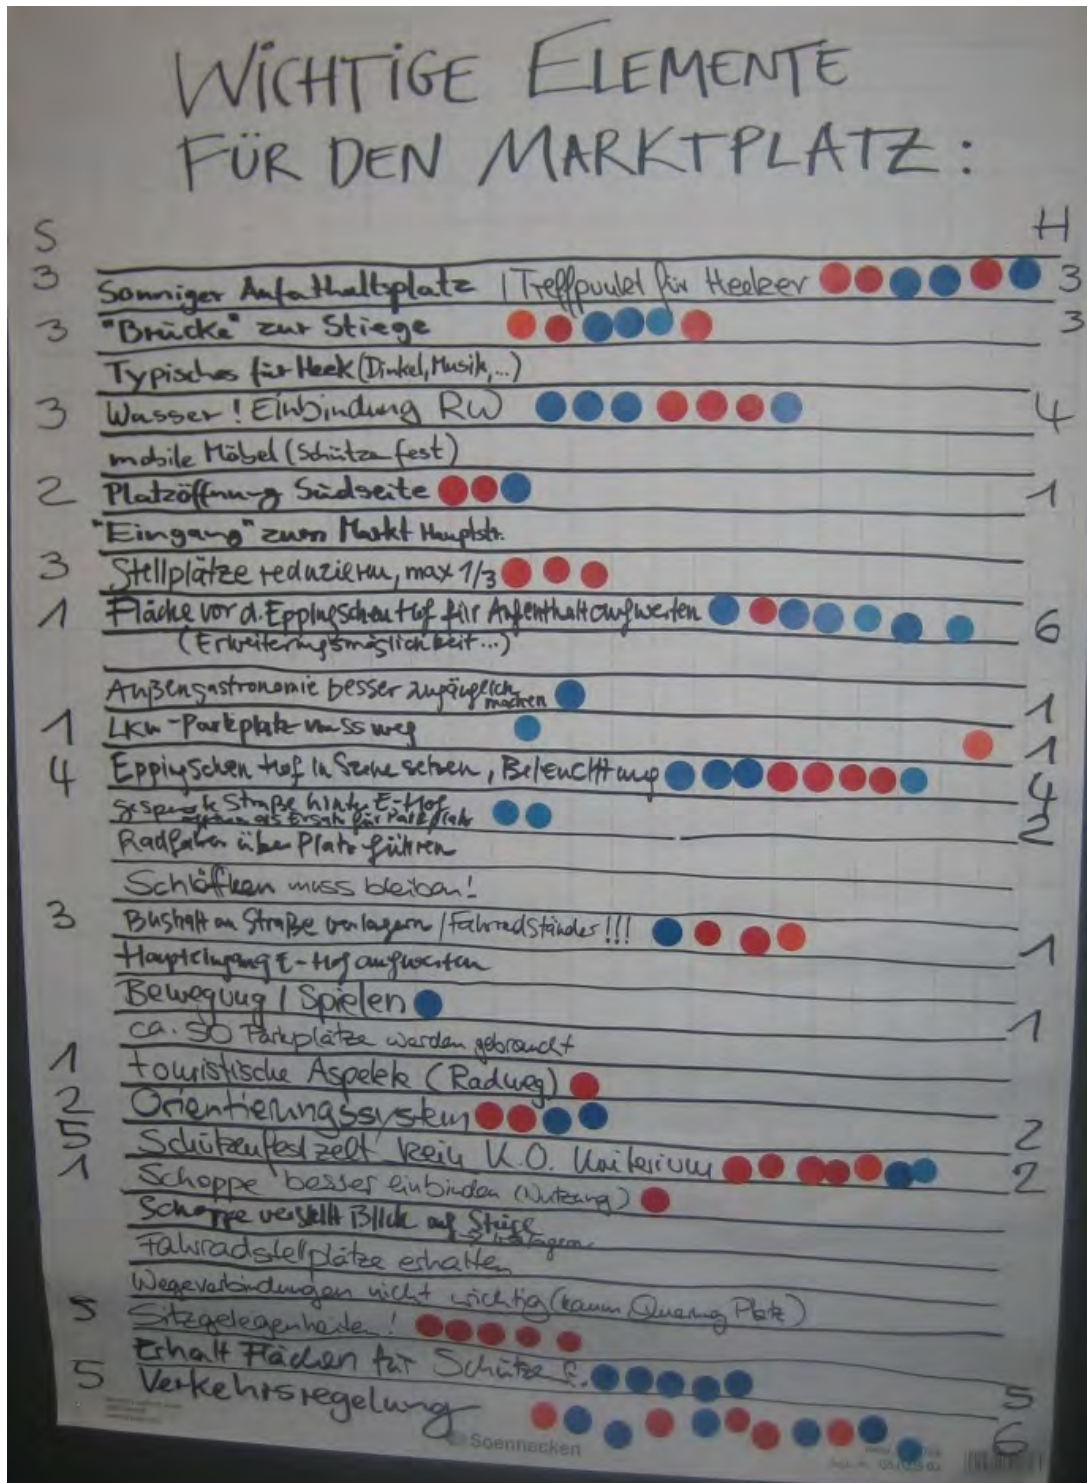 WICHTIGE ELEMENTE
FÜR DEN MARKTPLATZ:
S H
3 Sonniger Aufenthaltsplatz / Treffpunkt für Heeker 3
3 "Brücke" zur Stiege 3
Typisches für Heek (Dinkel, Musik, ...)
3 Wasser! Einbindung RW 4
mobile Möbel (Schützenfest)
2 Platzöffnung Südseite 1
"Eingang" zum Markt Hauptstr.
3 Stellplätze reduzieren, max 1/3
1 Fläche vor d. Eppingschen Hof für Aufenthalt aufwerten 6
(Erweiterungsmöglichkeit...)
Außengastronomie besser zugänglich machen 1
1 LKW-Parkplatz muss weg 1
4 Eppingschen Hof in Szene setzen, Beleuchtung 4
Straße hinter E-Hof 2
als Ersatz für Parkplatz
Radfahrer über Platz führen
Schlöffken muss bleiben!
3 Bushalt an Straße verlagern / Fahrradständer!!! 1
Haupteingang E-Hof aufwerten
Bewegung / Spielen 1
ca. 50 Parkplätze werden gebraucht
1 touristische Aspekte (Radweg)
2 Orientierungssystem 2
5 Schützenfestzelt kein K.O. Kriterium 2
1 Schoppe besser einbinden (Nutzung)
Schoppe verstellt Blick auf Stiege
Fahrradstellplätze erhalten
Wegeverbindungen nicht wichtig (kaum Platz)
5 Sitzgelegenheiten!
Erhalt Flächen für Schützenf. 5
5 Verkehrsregelung 6
Soennecken